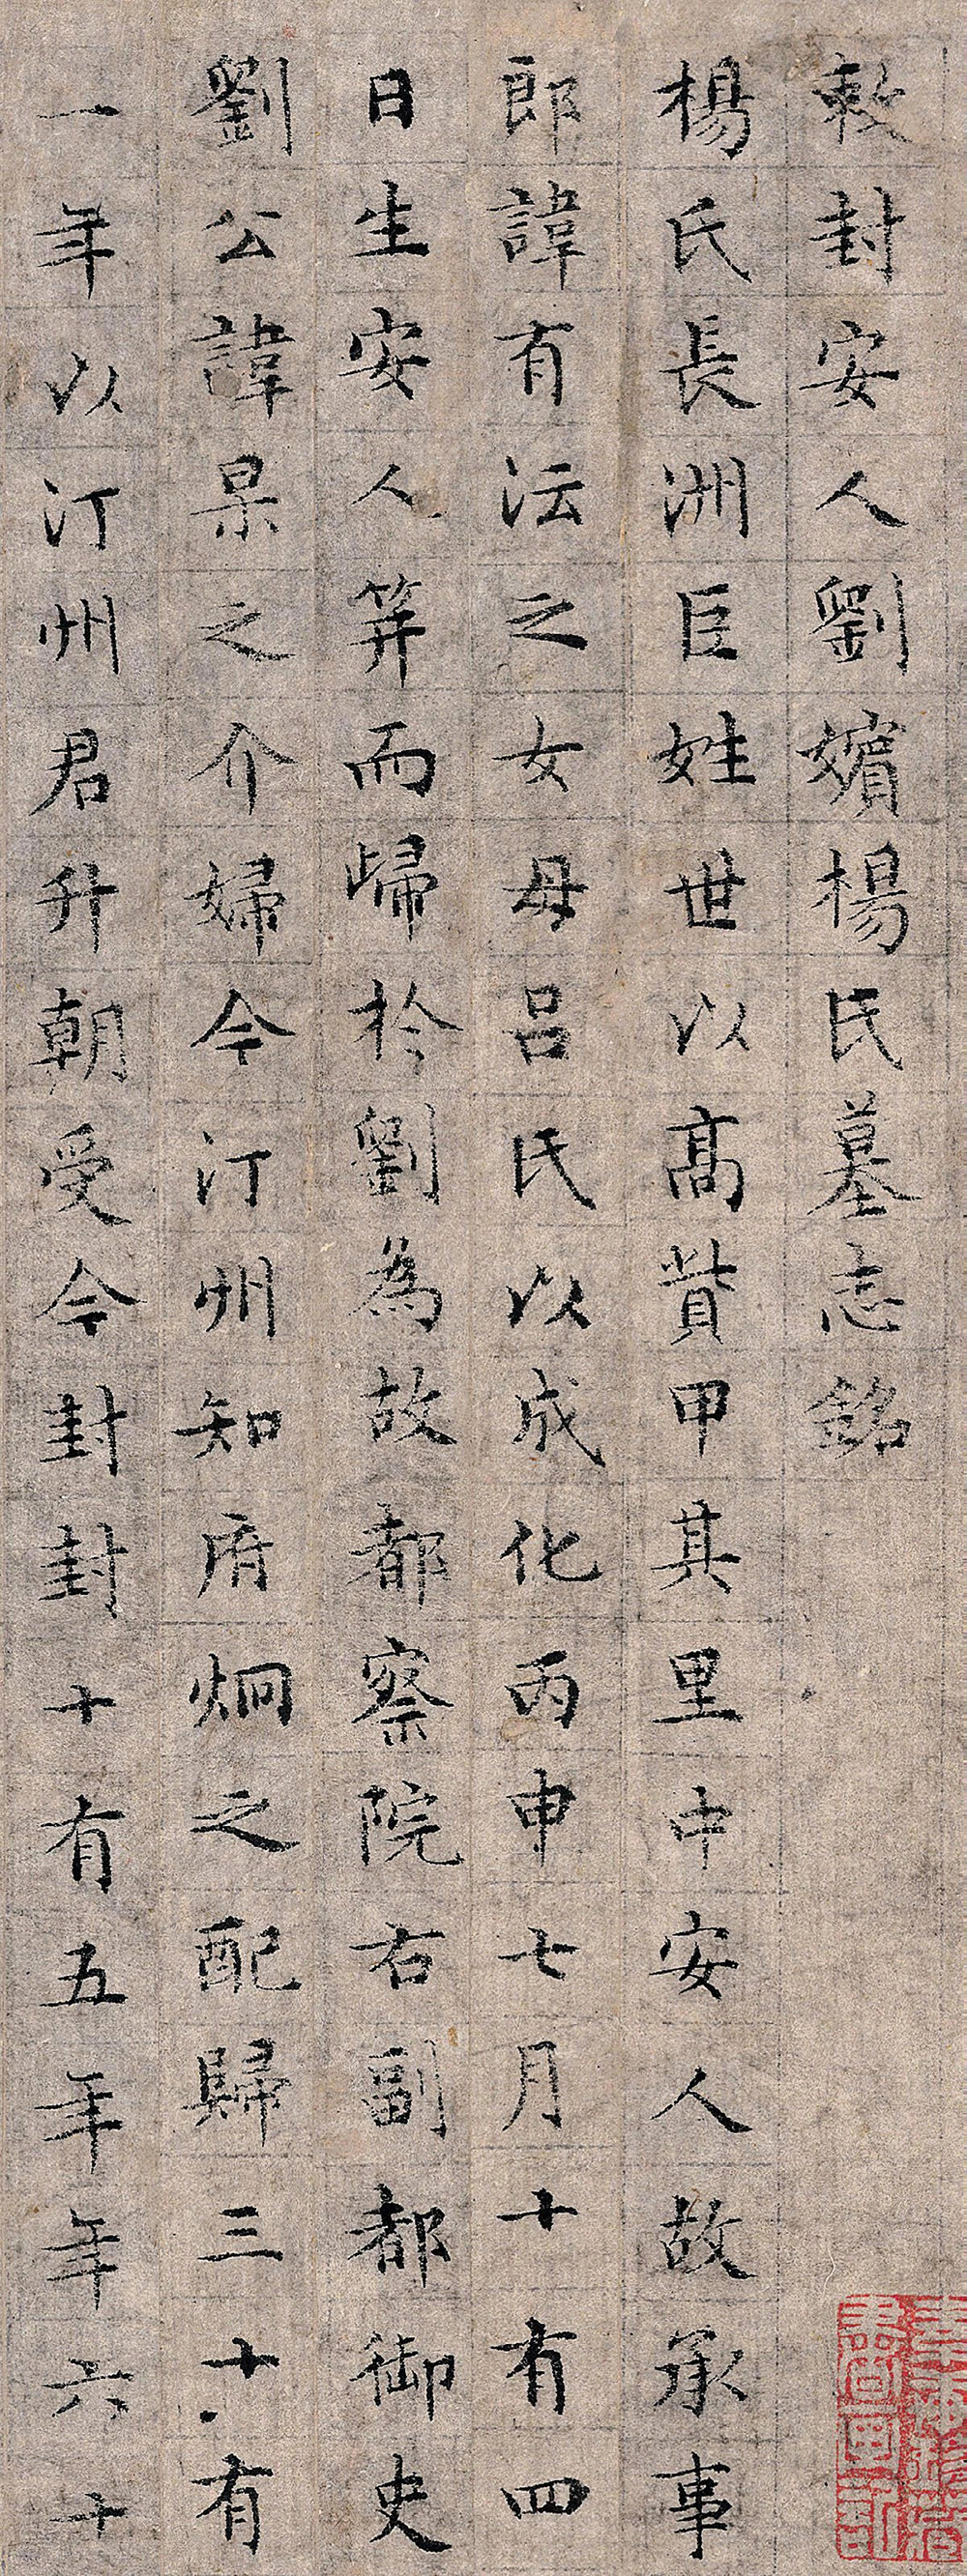 敕封安人劉嬪楊氏墓志銘
楊氏長洲巨姓世以髙貲甲其里中安人故承事
郎諱有沄之女母吕氏以成化丙申七月十有四
日生安人笄而歸於劉為故都察院右副都御史
劉公諱杲之介婦今汀州知府炯之配歸三十有
一年以汀州君升朝受今封封十有五年年六十